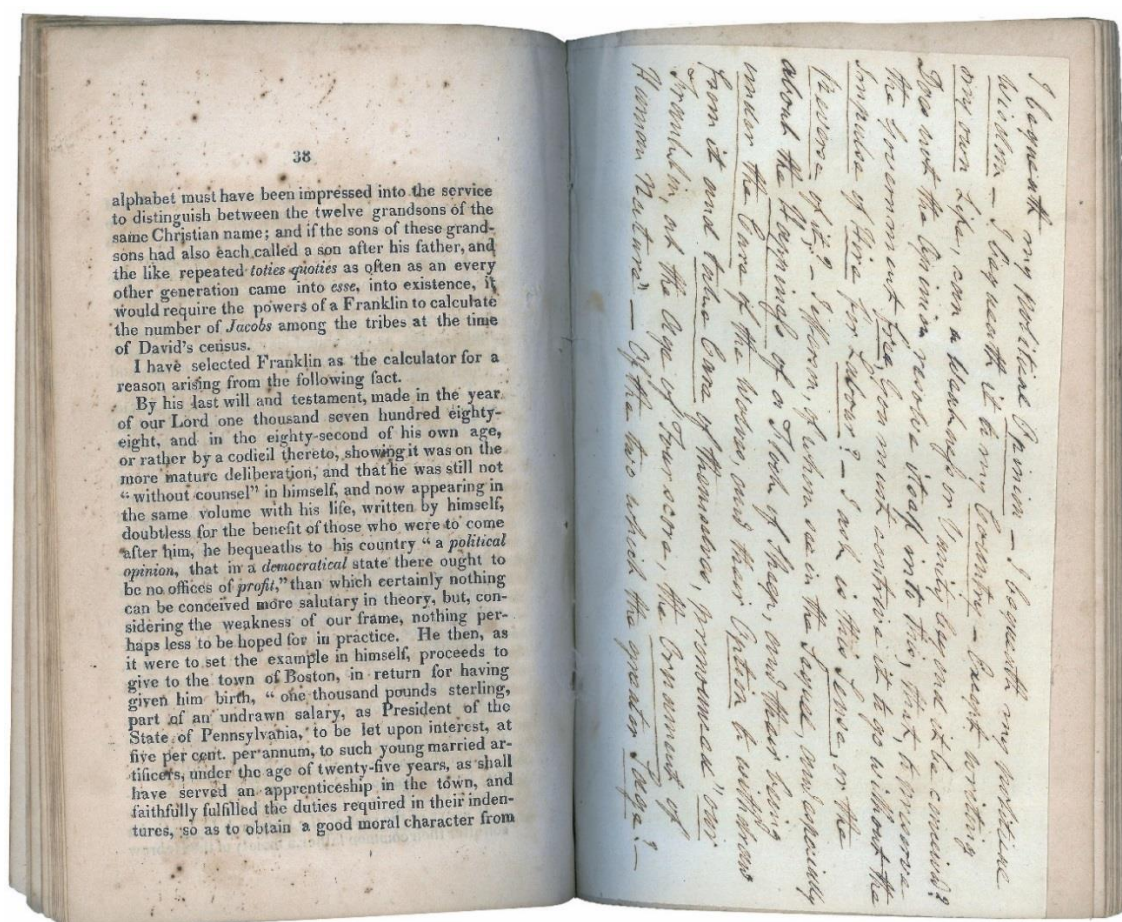 38
alphabet must have been impressed into the service
to distinguish between the twelve grandsons of the
same Christian name; and if the sons of these grand-
sons had also each called a son after his father, and
the like repeated toties quoties as often as an every
other generation came into esse, into existence, it
would require the powers of a Franklin to calculate
the number of Jacobs among the tribes at the time
of David's census.
I have selected Franklin as the calculator for a
reason arising from the following fact.
By his last will and testament, made in the year
of our Lord one thousand seven hundred eighty-
eight, and in the eighty-second of his own age,
or rather by a codicil thereto, showing it was on the
more mature deliberation, and that he was still not
“without counsel” in himself, and now appearing in
the same volume with his life, written by himself,
doubtless for the benefit of those who were to come
after him, he bequeaths to his country “a political
opinion, that in a democratical state there ought to
be no offices of profit,” than which certainly nothing
can be conceived more salutary in theory, but, con-
sidering the weakness of our frame, nothing per-
haps less to be hoped for in practice. He then, as
it were to set the example in himself, proceeds to
give to the town of Boston, in return for having
given him birth, “one thousand pounds sterling,
part of an undrawn salary, as President of the
State of Pennsylvania, to be let upon interest, at
five per cent. per annum, to such young married ar-
tificers, under the age of twenty-five years, as shall
have served an apprenticeship in the town, and
faithfully fulfilled the duties required in their inden-
tures, so as to obtain a good moral character from
I bequeath my political Opinion – I bequeath my political
Wisdom – I bequeath it to my Country – Except writing
my own Life, can a Weakness or Vanity beyond it be conceived?
Does not the Opinion resolve itself into this, that, to preserve
the Government free, You must contrive it to go without the
Impulse of Hire for Labour? – I ask is this Sense, or the
Reverse of it? – Jefferson, of whom see in the Sequel, and especially
about the Happiness of a Flock of Sheep, and their being
under the Care of the Wolves, and their Option to withdraw
from it and take Care of themselves, pronounced "our
Franklin, at the Age of Fourscore, the Ornament of
Human Nature" – Of the two which the greater Sage? –